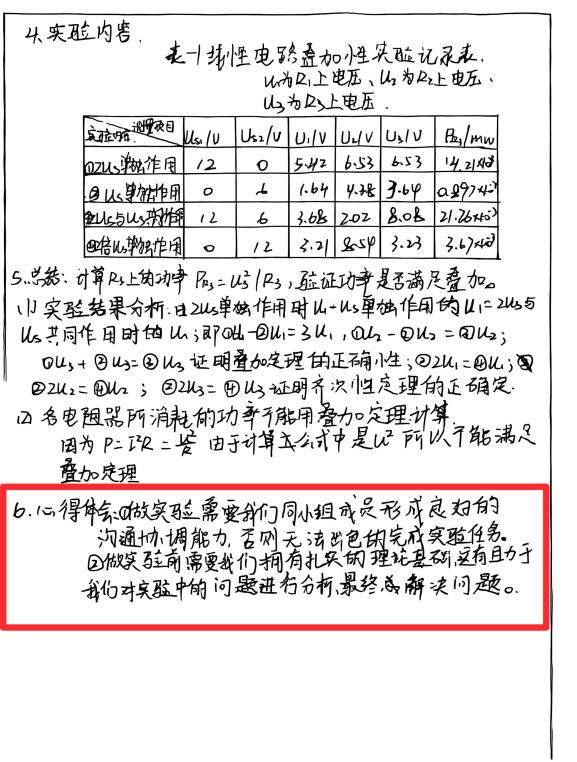 4.实验内容.
表一线性电路叠加性实验记录表.
U1为R1上电压、U2为R2上电压、
U3为R3上电压.
实验内容 测量项目 Us1/V Us2/V U1/V U2/V U3/V PR3/mW
单独作用 12 0 5.42 6.53 6.53 14.21×10⁻³
单独作用 0 6 1.64 4.38
12 6 3.68 2.02 8.08 21.76×10⁻³
单独作用 0 12 3.21 8.54 3.23
5.总结: 计算R3上的功率 PR3=U3²/R3,验证功率是否满足叠加。
(1) 实验结果分析.由2Us单独作用时U1-Us单独作用的U1=2Us与
Us共同作用时的U1;即①U1-②U1=3U1,①U2-②U2=③U2;
①U3+②U3=③U3 证明叠加定理的正确性;②2U1=④U1;
②2U2=④U2 ; ②2U3=④U3证明齐次性定理的正确定.
(2) 各电阻器所消耗的功率不能用叠加定理计算
因为P=I²R= 由于计算公式中是U² 所以不能满足
叠加定理
6.心得体会:①做实验需要我们同小组成员形成良好的
沟通协调能力,否则无法出色的完成实验任务。
②做实验前需要我们拥有扎实的理论基础,没有且力于
我们对实验中的问题进行分析,最终 解决问题。